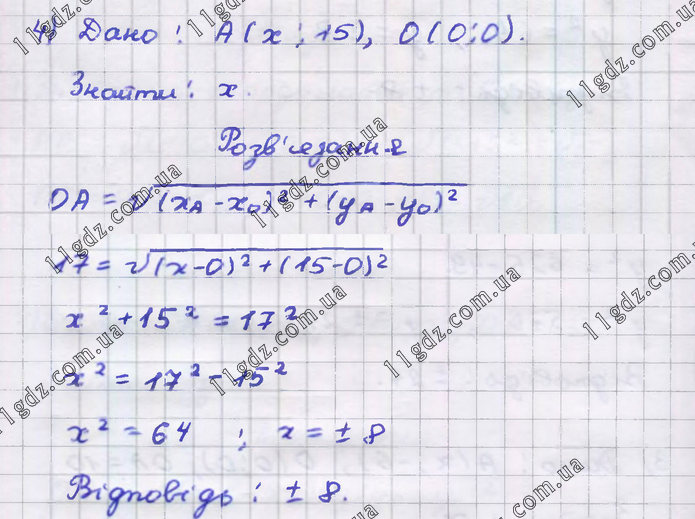 4) Дано: A(x; 15), O(0;0).
Знайти: x.
Розв'язання
OA = √(x_A - x_O)² + (y_A - y_O)²
17 = √(x-0)² + (15-0)²
x² + 15² = 17²
x² = 17² - 15²
x² = 64 ; x = ± 8
Відповідь: ± 8.
11gdz.com.ua
11gdz.com.ua
11gdz.com.ua
11gdz.com.ua
11gdz.com.ua
11gdz.com.ua
11gdz.com.ua
11gdz.com.ua
11gdz.com.ua
11gdz.com.ua